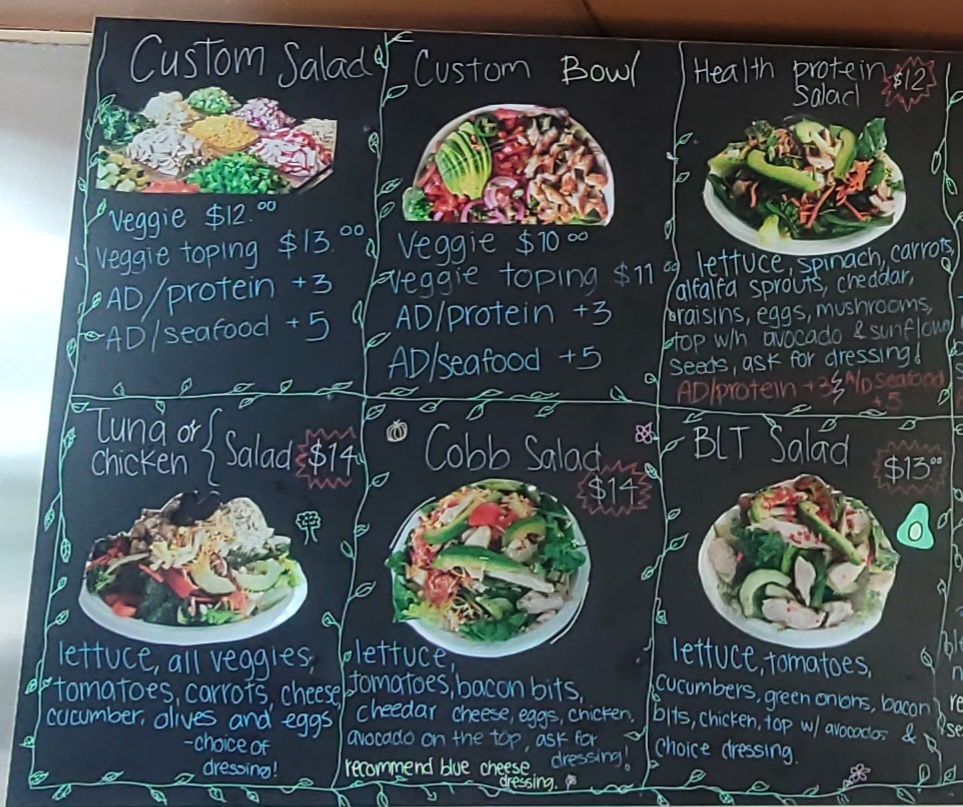 Custom Salad
Veggie $12.00
Veggie toping $13.00
AD/protein +3
AD/seafood +5
Custom Bowl
Veggie $10 00
Veggie toping $11 00
AD/Protein +3
AD/seafood +5
Health protein $12
Salad
lettuce, spinach, carrots,
alfalfa sprouts, cheddar,
raisins, eggs, mushrooms,
top w/h avocado & sunflow
seeds, ask for dressing!
AD/protein +3 & A/D Seafood
+5
Tuna or
Chicken { Salad $14
lettuce, all veggies,
tomatoes, carrots, cheese,
cucumber, olives and eggs
-choice of
dressing!
Cobb Salad
$14
lettuce,
tomatoes, bacon bits,
cheedar cheese, eggs, chicken,
avocado on the top, ask for
dressing!
recommend blue cheese
dressing.
BLT Salad
$13.00
lettuce, tomatoes,
cucumbers, green onions, bacon
bits, chicken, top w/ avocados &
choice dressing.